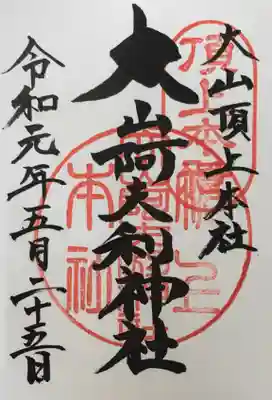 大山頂上本社
大山阿夫利神社
令和元年五月二十五日
本社